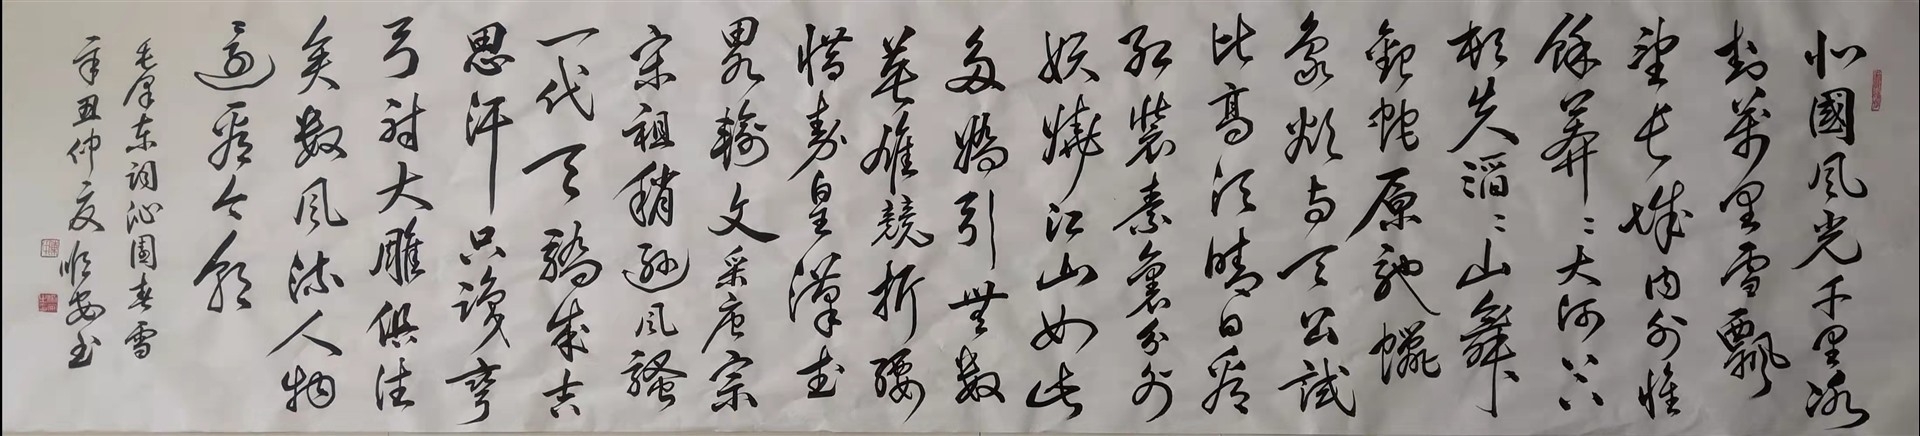 北國風光千里冰
封萬里雪飄
望長城內外惟
餘莽〻大河上下
頓失滔〻山舞
銀蛇原馳蠟
象欲与天公試
比高須晴日看
紅裝素裹分外
妖嬈江山如此
多嬌引無數
英雄競折腰
惜秦皇漢武
畧輸文采唐宗
宋祖稍遜風騷
一代天驕成吉
思汗只識彎
弓射大雕俱往
矣數風流人物
還看今朝
毛澤東詞沁園春雪
辛丑仲夏順安書